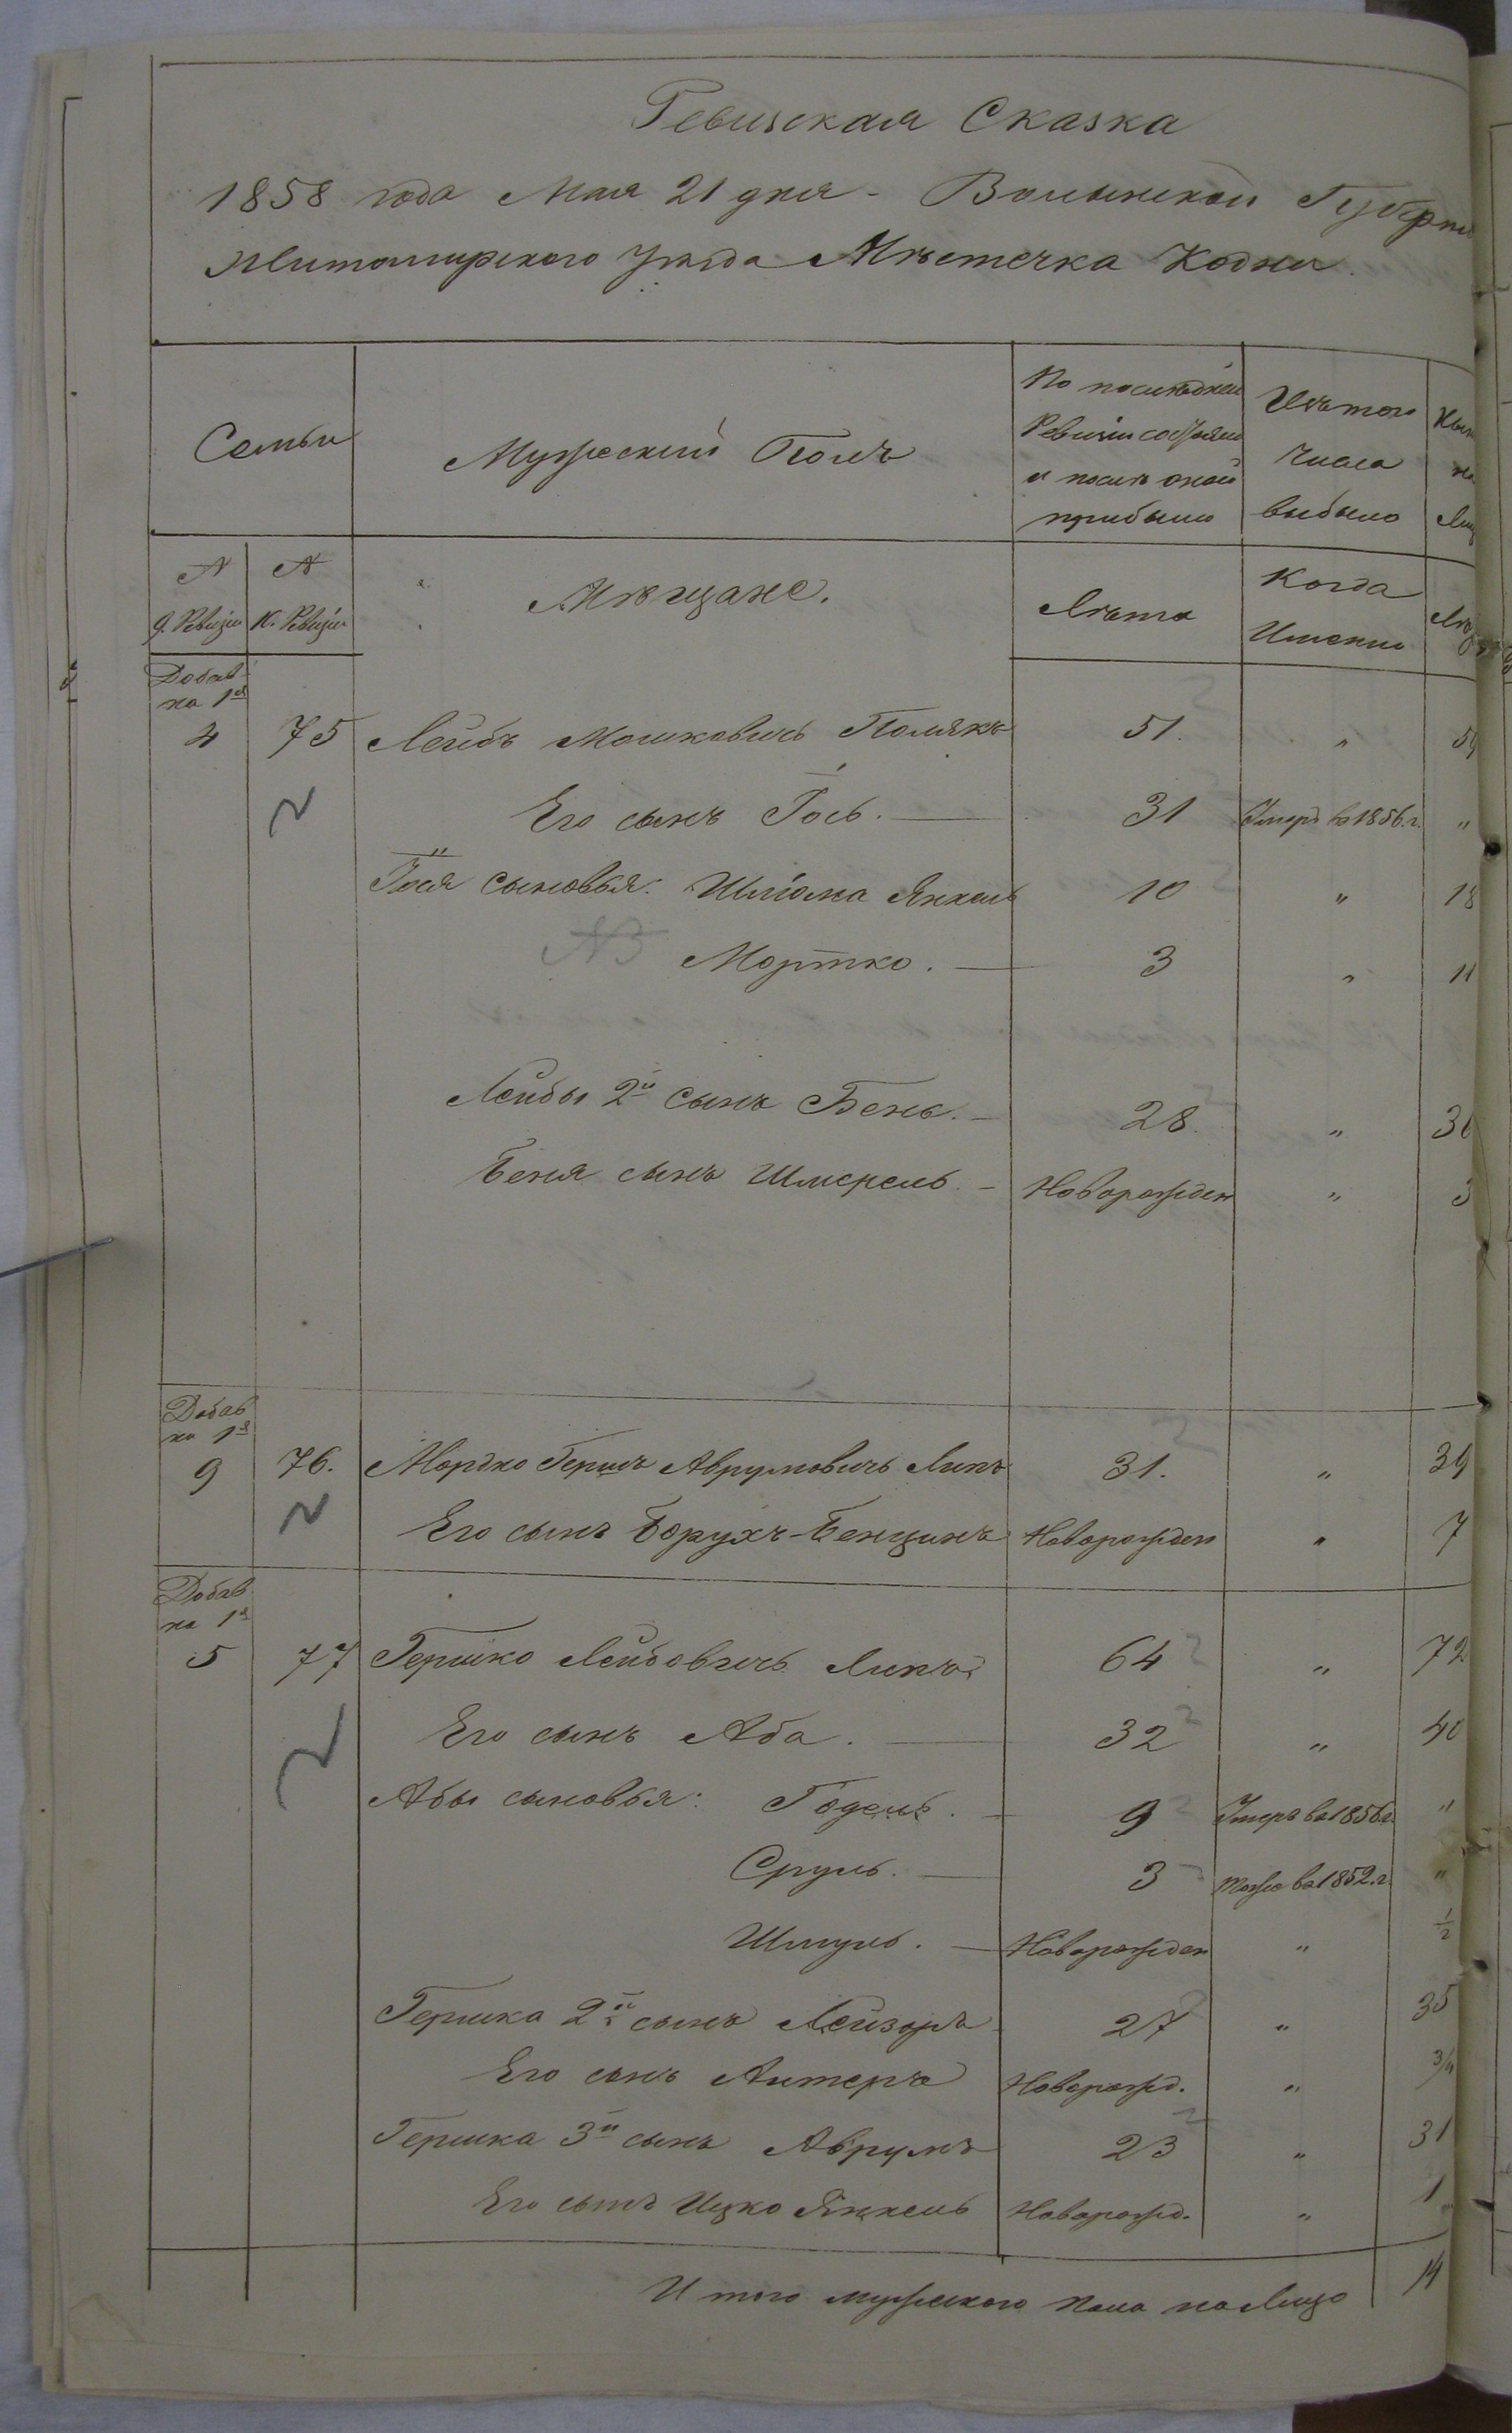 Ревизская Сказка
1858 года Мая 21 дня - Волынской Губерни
Житомирского уезда Мѣстечка Кодни.
Семьи
Мужеский Полъ
По последней Ревизии состояло и после оной прибыло
Изъ того числа выбыло
Ныне на Лиц
№ 9. Ревизіи
№ К. Ревизіи
Мѣщане.
Лѣта
Когда Именно
Лѣт
Добав на 1й
4 75 Лейбъ Мошковичь Полякъ 51. " 59
Его сынъ Гось. — 31 Умеръ в 1856.г. "
Гося сыновья: Шліома Янкель 10 " 18
NB Мортко. — 3 " 11
Лейбы 2й сынъ Бень. — 28. " 36
Беня сынъ Шмерель. — Новорожден " 3
Добав на 1й
9 76. Мордко Гершъ Аврумовичь Липъ 31. " 39
Его сынъ Борухъ-Бенционъ Новорожден " 7
Добав на 1й
5 77 Гершко Лейбовичь Липъ 64 " 72
Его сынъ Аба. — 32 " 40
Абы сыновья: Годель. — 9 Умеръ в 1856г. "
Сруль. — 3 тоже в 1852.г. "
Шмуль. — Новорожден " 1/2
Гершка 2й сынъ Лейзоръ 27 " 35
Его сынъ Алтеръ Новорожд. " 3/4
Гершка 3й сынъ Аврумъ 23 " 31
Его сынъ Ицко Янкель Новорожд. " 1
Итого мужеского пола на Лицо 14